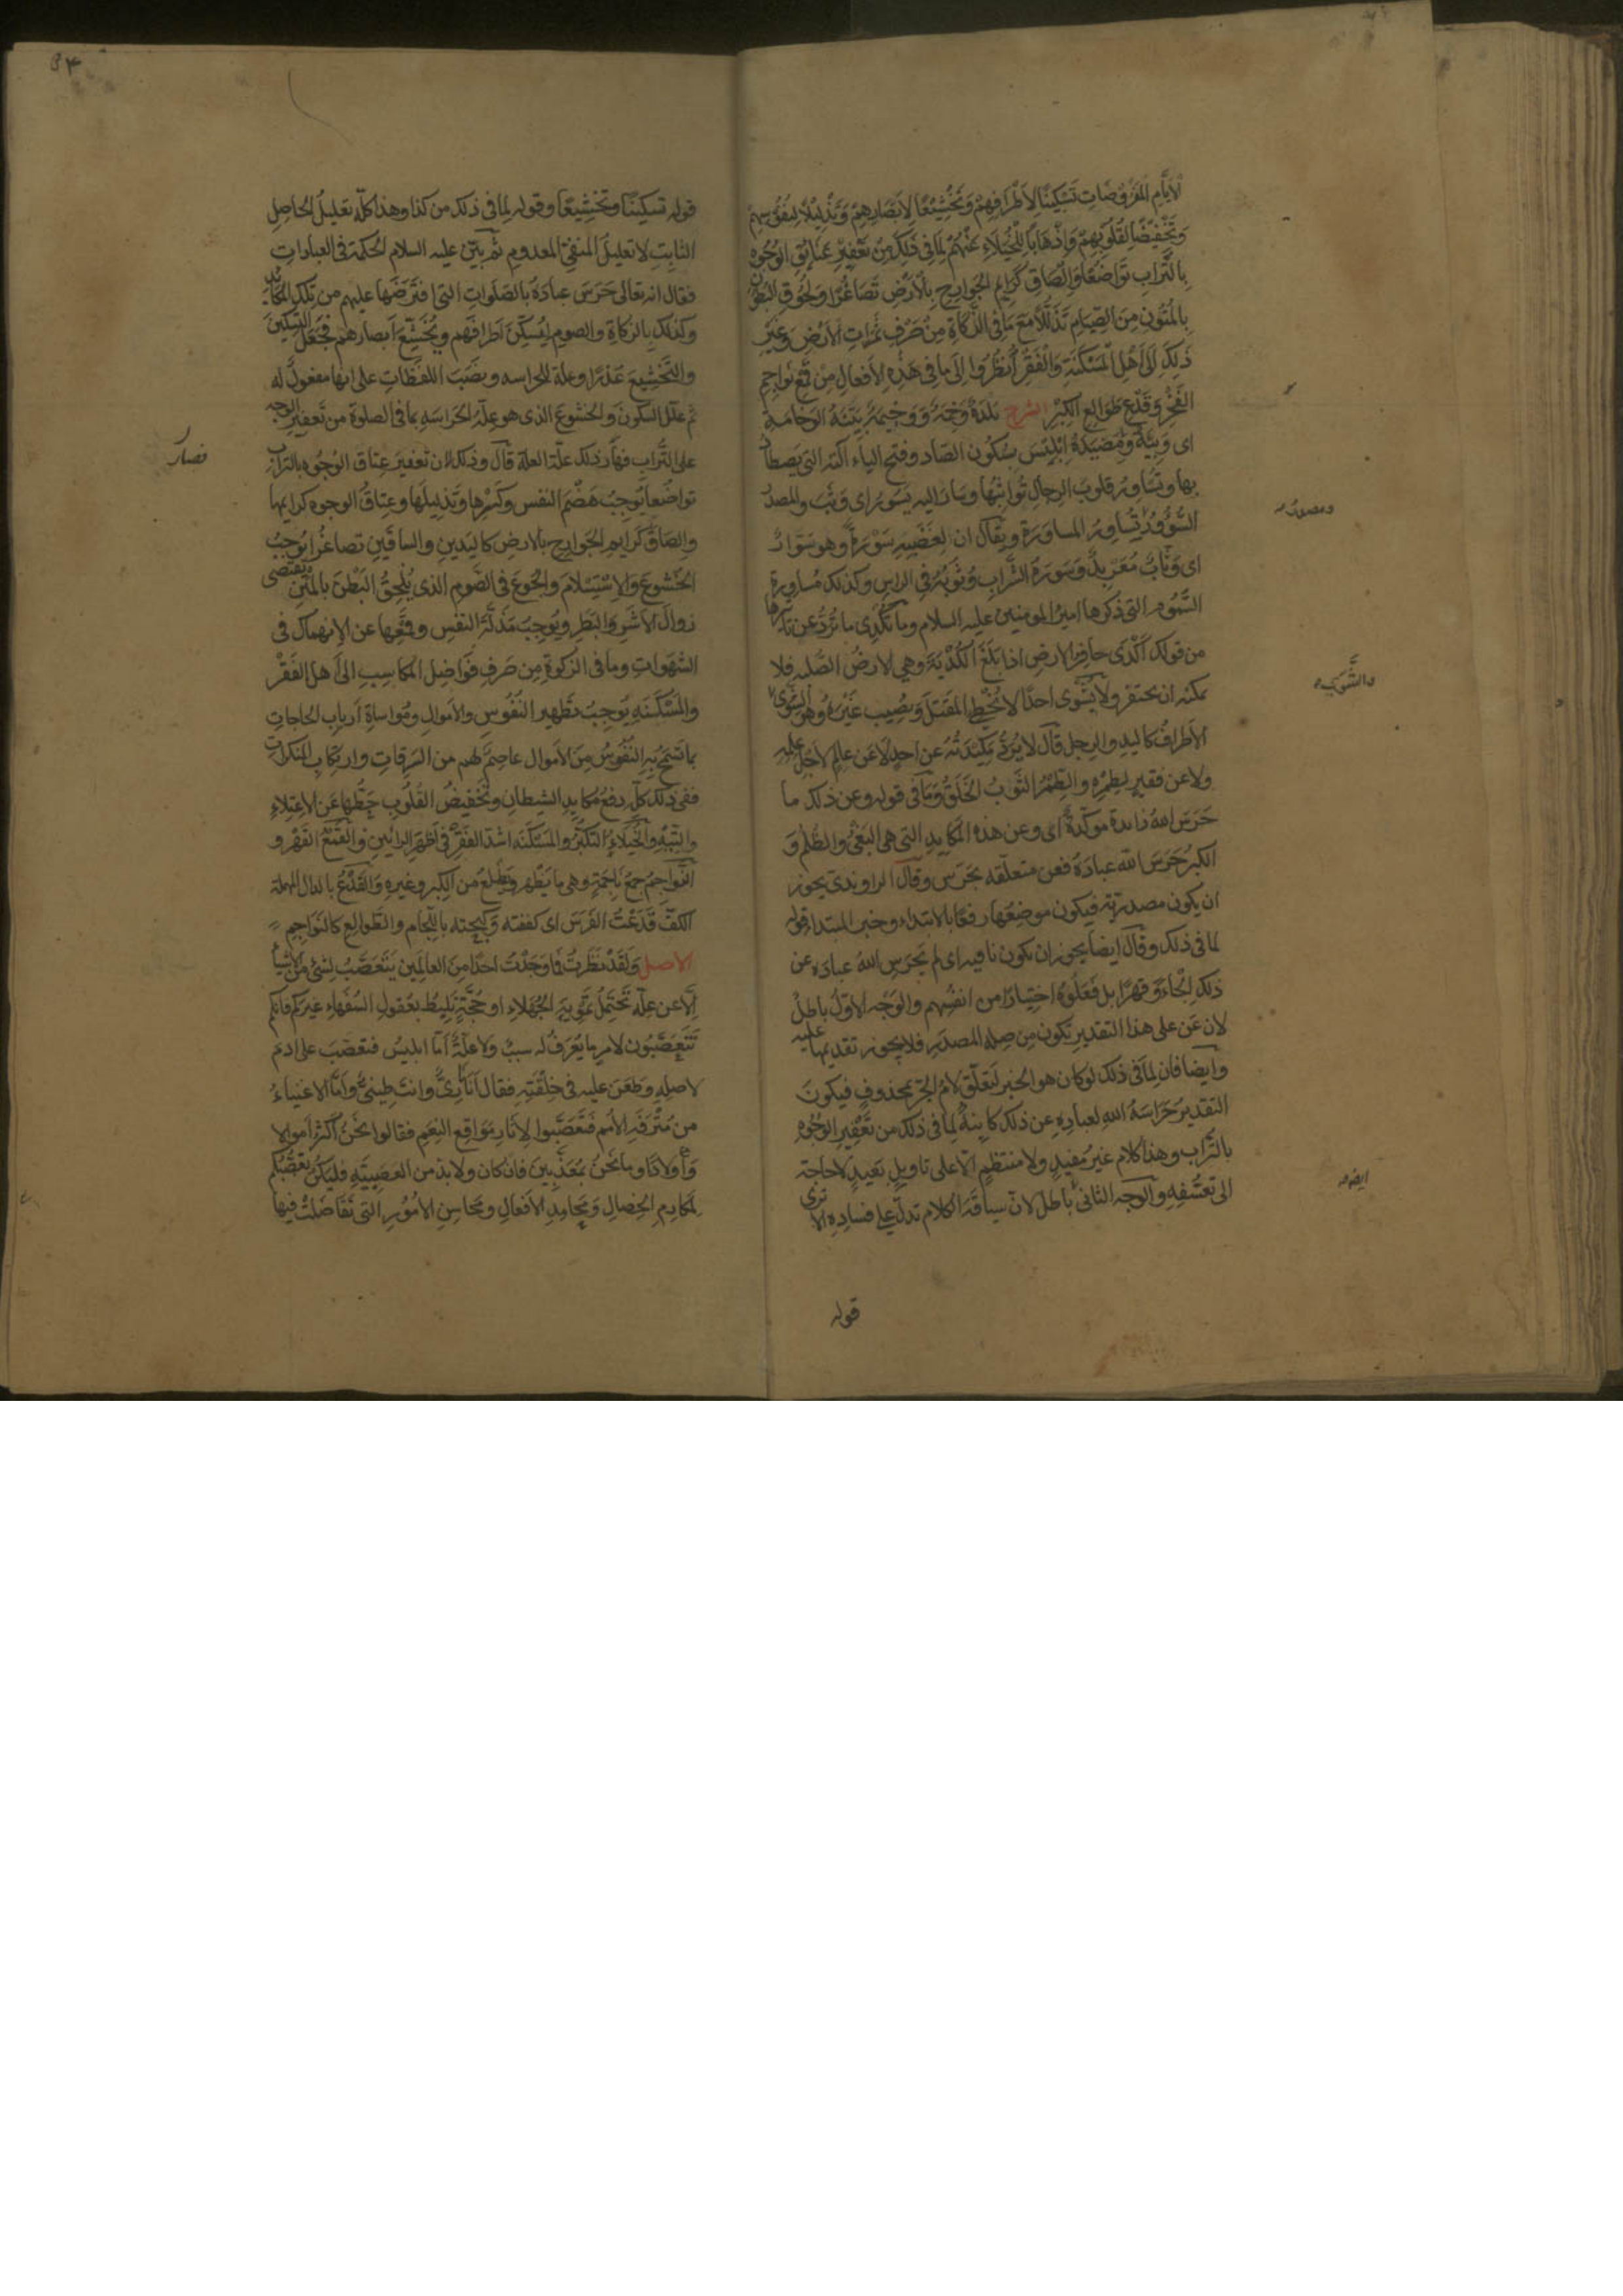 الأيَّامِ المَفْرُوضَاتِ تَسْكِينًا لِأَطْرَافِهِمْ وَتَخْشِيعًا لِأَبْصَارِهِمْ وَتَذْلِيلًا لِنُفُوسِهِمْ
وَتَخْفِيضًا لِقُلُوبِهِمْ وَإِذْهَابًا لِلْخُيَلَاءِ عَنْهُمْ لِمَا فِي ذَلِكَ مِنْ تَعْفِيرِ عَتَائِقِ الوُجُوهِ
بِالتُّرَابِ تَوَاضُعًا وَالْصَاقِ كَرَايِمِ الجَوَارِحِ بِالأَرْضِ تَصَاغُرًا وَلُحُوقِ البُطُونِ
بِالمُتُونِ مِنَ الصِّيَامِ تَذَلُّلًا مَعَ مَا فِي الزَّكَاةِ مِنْ صَرْفِ ثَمَرَاتِ الأَرْضِ وَغَيْرِ
ذَلِكَ إِلَى أَهْلِ المَسْكَنَةِ وَالْفَقْرِ أُنْظُرُوا إِلَى مَا فِي هَذِهِ الأَفْعَالِ مِنْ قَمْعِ نَوَاجِمِ
الفَخْرِ وَقَدْعِ طَوَالِعِ الكِبْرِ الشرح بَلْدَةٌ وَخِمَةٌ وَوَخِيمَةٌ بَيِّنَةُ الوَخَامَةِ
اى وَبِيَّةٌ وَمَصْيَدَةُ اِبْلِيسَ بِسُكُون الصّاد وفتح الياء آلته التى يصطاد
بها وتُسَاوِرُ قلوبَ الرجال تُواثِبُها وسَارَ اليه يَسُورُ اى وَثَبَ والمصدرُ
السُّؤُورُ تُسَاوِرُ المساورَة ويقال ان لِغَضَبِهِ سَوْرَةً وهو سَوَّارٌ
اى وَثَّابٌ مُعَرْبِدٌ وَسَورَةُ الشَّرابِ وُثُوبُهُ فِي الراس وكذلك مُساورة
السُّمُوم التى ذكرها اميرُ المومنين عليه السلام وما تُكْدِى ما تُرَدُّ عن تاثيرها
من قولك أَكْدَى حافِرُ الارض اذا بَلَغَ الكُدْيَةَ وهي الارضُ الصُّلبه فلا
يمكنه ان يحتفر ولا تُشْوِى احدًا لا تُخْطِى المَقتَلَ وتُصِيب غَيْرَهُ وهو الشَّوَى
الأَطرافُ كاليدِ والرِجل قال لا يُرَدُّ مَكِيْدَتُهُ عن احدٍ لا عَن عالمٍ لاَجْلِ علمِه
ولا عن فقيرٍ لِطِمْرِه والطِّمْرُ الثَّوبُ الخَلَقُ وَمَا فى قوله وعن ذلك ما
حَرَسَ اللهُ زائدة مؤكّدة اى وعن هذه المَكَايِدِ التى هى البَغْىُ والظُلْمُ وَ
الكِبرُ حَرَسَ اللّه عبادَهُ فعن متعلّقه بحَرَس وقال الراوندى يجوز
ان يكون مصدريّة فيكون موضِعُها رفعًا بالابتداء وخبر المبتدا قوله
لما فى ذلك وقال ايضا يجوز ان تكون نافيه اى لم يَحْرَسِ اللهُ عبادَه عن
ذلك إلْجاءً وَقهرًا بل فَعَلُوهُ اختِيارًا من انفُسِهم والوَجْه الاوّلُ باطِلٌ
لان عَن على هذا التقدير تَكون مِن صِلةِ المصدَرِ فلا يجوز تقديمُها عليه
وايضا فان لِمَا فى ذلك لو كان هو الخبر لَتَعلّقَ لامُ الجَرّ بمحذوفٍ فيكونَ
التقديرُ حَرَاسَةُ اللهِ لعبادِهِ عن ذلك كاينةٌ لِمَا فى ذلك من تَعْفِيرِ الوُجُوهِ
بالتُراب وهذا كلام غيرُ مُفِيدٍ ولا منتظمٍ الّا على تاويلٍ بَعيدٍ لا حاجة
الى تعسُّفِهِ والوجه الثانى باطل لانّ سياقَةَ الكلام تدلّ على فسادِه الا ترى
قوله
ومصدره
ايضا
قوله تسكينًا وتخشِيعًا وقوله لِما فى ذلك من كذا وهذا كلّه تعليلُ الحاصِلِ
الثابِتِ لا تعليلَ المنفِىّ المعدومِ ثم بَيَّنَ عليه السلام الحكمة فى العبادات
فقال انه تعالى حَرَسَ عبادَهُ بالصَلَوات التى افتَرضَها عليهم من تلك المَكَايِد
وكذلك بالزكاةِ والصومِ لِيُسَكِّنَ اَطرافَهم ويُخَشِّعَ اَبصارهم فجعَلَ التسكينَ
والتخشِيعَ عُذرًا وعلة للحراسه ونَصَبَ اللفظاتِ على انها مفعولٌ له
ثم علّل السكونَ والخشوعَ الذى هو عِلّة الحراسَهِ بما فى الصلوة من تَعفِير الوجه
على التُراب فصار ذلك علّة العِلّة قال وذلك لان تعفيرَ عِتاقِ الوُجُوه بالتراب
تواضُعًا يُوجِبُ هَضْمَ النفس وكَسْرِها وتَذلِيلَها وعِتَاقُ الوجوه كرايمها
والصاق كَرايمِ الجَوارِح بالارض كاليَدينِ والساقَيْنِ تصاغُرًا يُوجِبُ
الخُشوعَ وَالاِسْتِسْلامَ والجُوعَ فى الصَّومِ الذى يُلْحِقُ البَطْنَ بالمَتْنِ يقتضى
زوالَ الاَشَرِ وَالبَطَرِ ويُوجِبُ مَذَلَّةَ النفسِ وقمْعَها عن الاِنهماك فى
الشهَواتِ وما فى الزكوةِ مِن صَرفِ فَواضِلِ المَكاسِبِ الى اَهلِ الفَقْر
والمَسْكَنَهِ يُوجِبُ تَطْهِيرَ النُفُوسِ والاَموالِ ومُواساةِ اَربابِ الحاجاتِ
بما تَسْمَحُ بِهِ النُفُوسُ مِنَ الاموال عاصمٌ لهم من السَرِقاتِ وارتِكابِ المنكرات
ففى ذلك كلّه دفعُ مَكايدِ الشيطانِ وتَخفِيضُ القُلُوبِ حَطُّها عَن الاِعتِلاءِ
والتِيهِ والخُيَلاءُ التَكبّرُ والمَسْكَنَةُ اشدّ الفَقْرِ فى اَظهَرِ الرايَينِ والقَمْعُ القَهْر و
النَّواجِمُ جمعُ نَاجِمَةٍ وهى ما يَظْهر ويَطلعُ من الكِبرِ وغيرِهِ وَالقَدْعُ بالدال المهملة
الكفّ قَدَعْتُ الفَرَسَ اى كففته وَكبَحته باللِّجام والطَوالِع كالنَواجِم
الاصل وَلَقَدْ نَظَرتُ فَما وَجَدْتُ احدًا مِنَ العالَمِين يَتَعَصّبُ لِشَىْءٍ مِنَ الاَشْياءِ
اِلّا عن عِلّةٍ تَحْتَمِلُ تَمْوِيهَ الجُهَلاءِ او حُجَّةٍ تَلِيطُ بعُقولِ السُفَهاءِ غيرَكم فانكم
تَتَعَصَّبُون لاَمرٍ ما يُعرَفُ له سببٌ ولا علّةٌ اَمّا ابليس فتعصّبَ على ادمَ
لاصلِهِ وطَعَنَ عليه فى خِلْقَتِهِ فقال اَنا نارِىٌّ وانت طِينىٌّ وَاَمّا الاغنياءُ
من مُتْرَفَةِ الاُمم فتَعَصَّبُوا لِآثارِ مَوَاقِعِ النِعَمِ فقالوا نَحْنُ اَكْثَرُ اَموالا
وَأَولادًا وما نَحْنُ بمُعَذَّبِينَ فان كان ولا بدّ من العَصَبِيّةِ فليَكُنْ تعَصُّبُكم
لِمَكارِمِ الخِصالِ وَمَحامِدِ الاَفعالِ ومَحَاسِنِ الاُمُورِ التى تَفَاضَلَتْ فيها
فصار